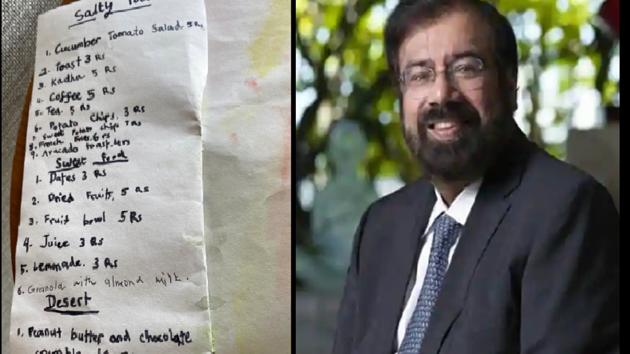 Salty
1. Cucumber Tomato Salad 5 Rs
2. Toast 3 Rs
3. Kadha 5 Rs
4. Coffee 5 Rs
5. Tea. 5 Rs
6. Potato Chips. 3 Rs
7. Sweet Potato chips
8. French Fries. 6 rs
9. Avacado toast.
Sweet Food
1. Dates 3 Rs
2. Dried Fruits, 5 Rs
3. Fruit bowl 5 Rs
4. Juice 3 Rs
5. Lemonade. 3 Rs
6. Granola with almond milk.
Desert
1. Peanut butter and chocolate